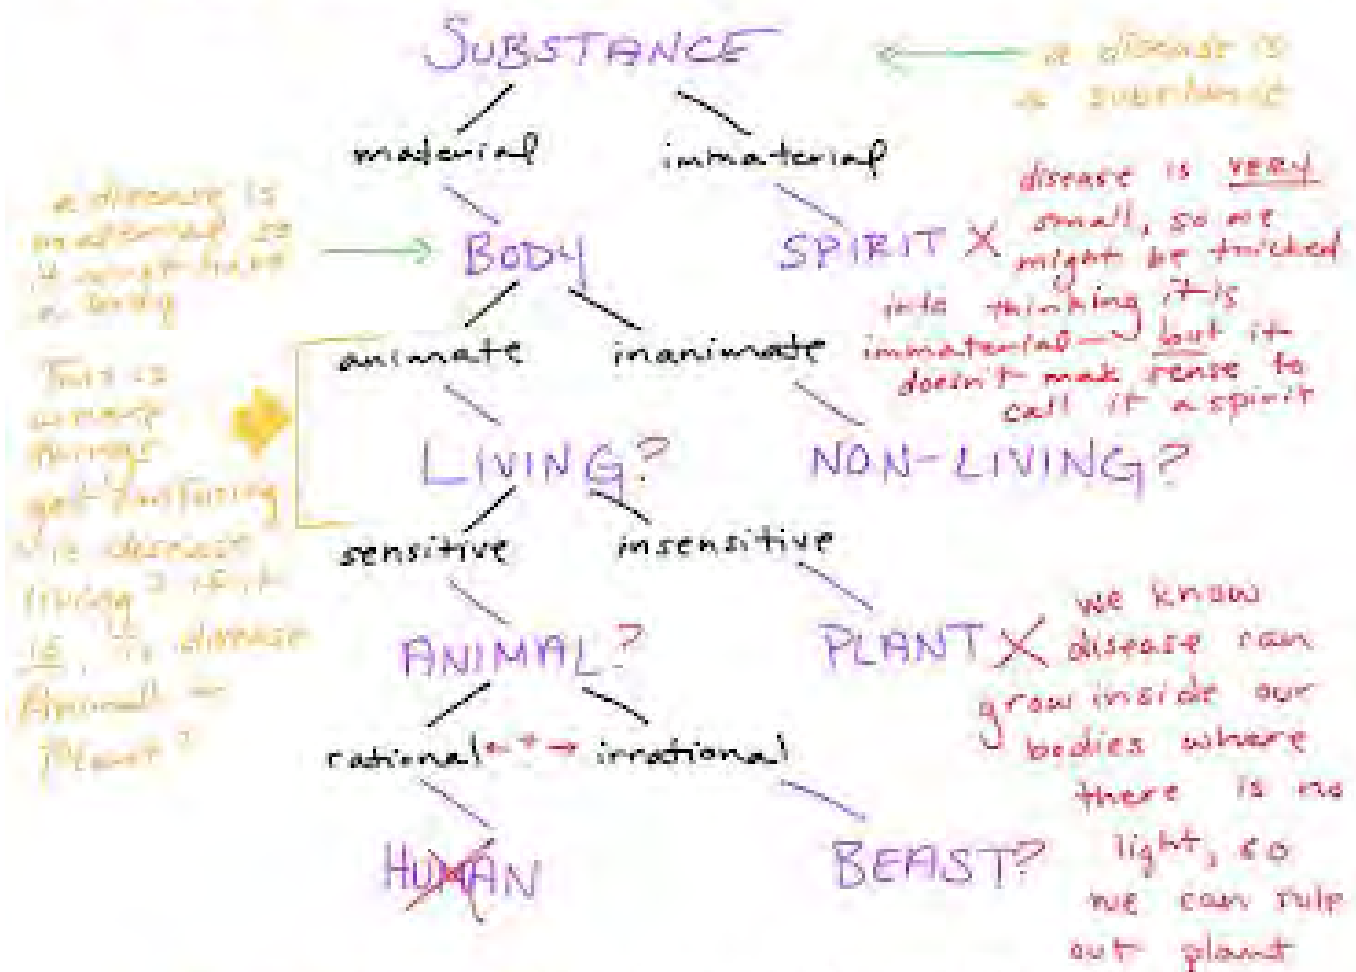 SUBSTANCE
a disease is
a substance
material
immaterial
a disease is
material so
it must have
a body
BODY
SPIRIT X
disease is VERY
small, so we
might be tricked
into thinking it is
immaterial — but it
doesn't mak sense to
call it a spirit
animate
inanimate
This is
where
things
get confusing
is disease
living? if it
is, is disease
Animal or
Plant?
LIVING?
NON-LIVING?
sensitive
insensitive
ANIMAL?
PLANT X
we know
disease can
grow inside our
bodies where
there is no
light, so
we can rule
out plant
rational ← + → irrational
HUMAN
BEAST?